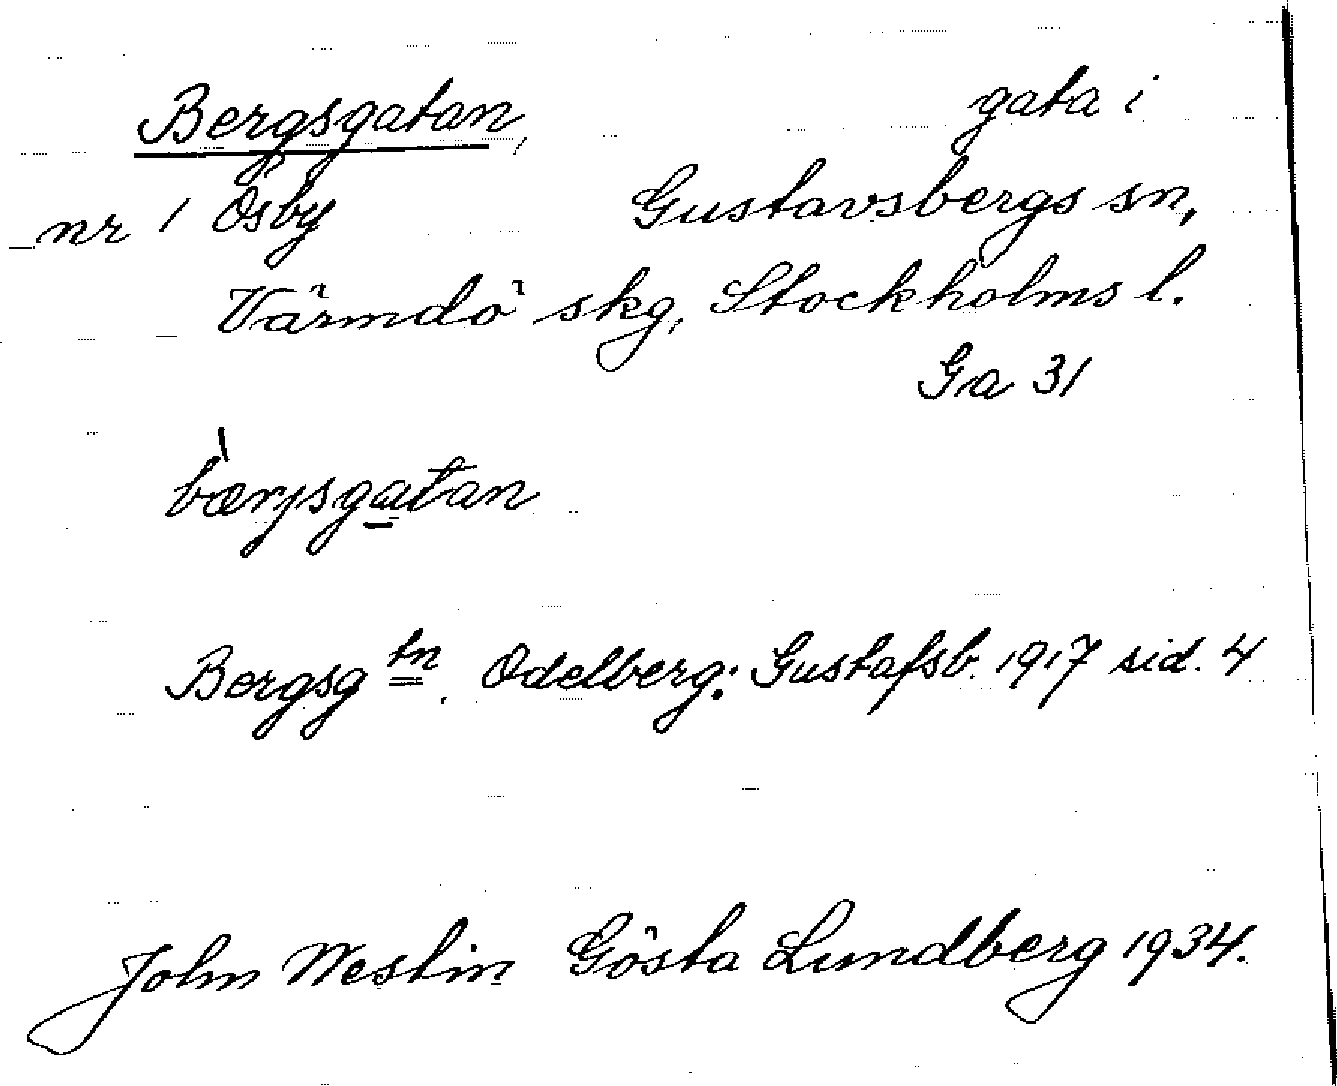 Bergsgatan, gata i
nr 1 Ösby Gustavsbergs sn,
Värmdö skg, Stockholms l.
Ga 31
bærjsgatan
Bergsg tn. Odelberg: Gustafsb. 1917 sid. 4
John Westin Gösta Lundberg 1934.